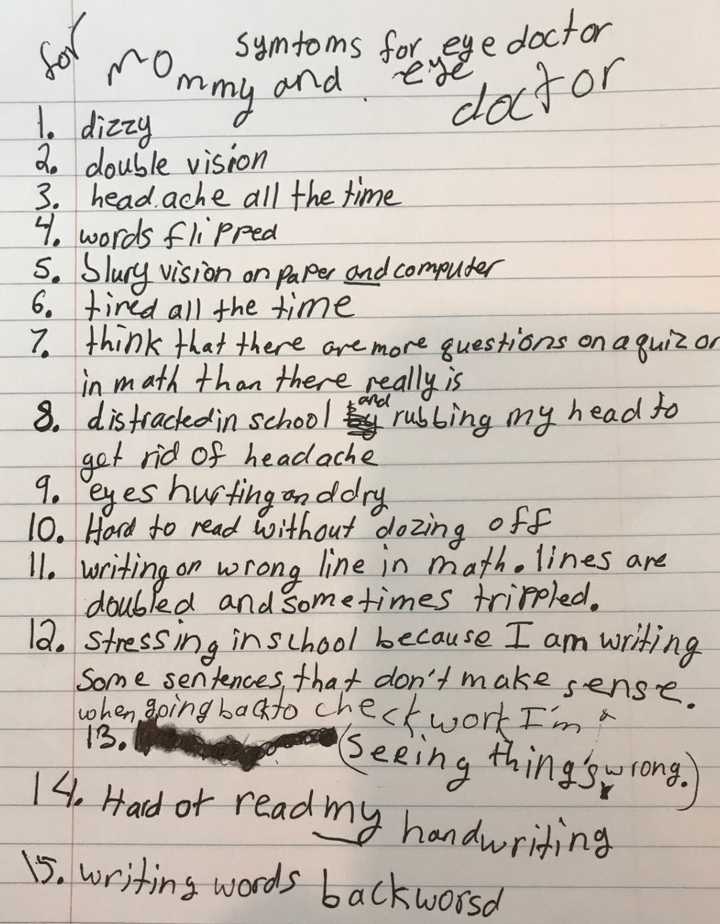 symtoms for eye doctor
for mommy and eye
doctor
1. dizzy
2. double vision
3. head.ache all the time
4. words flipped
5. blury vision on paper and computer
6. tired all the time
7. think that there are more questions on a quiz or
in math than there really is
8. distracted in school and rubbing my head to
get rid of headache
9. eyes hurting and dry
10. Hard to read without dozing off
11. writing on wrong line in math. lines are
doubled and sometimes trippled.
12. stressing in school because I am writing
some sentences that don't make sense.
when going back to check work I'm
13. (seeing thing's wrong.)
14. Hard ot read my handwriting
15. writing words backworsd